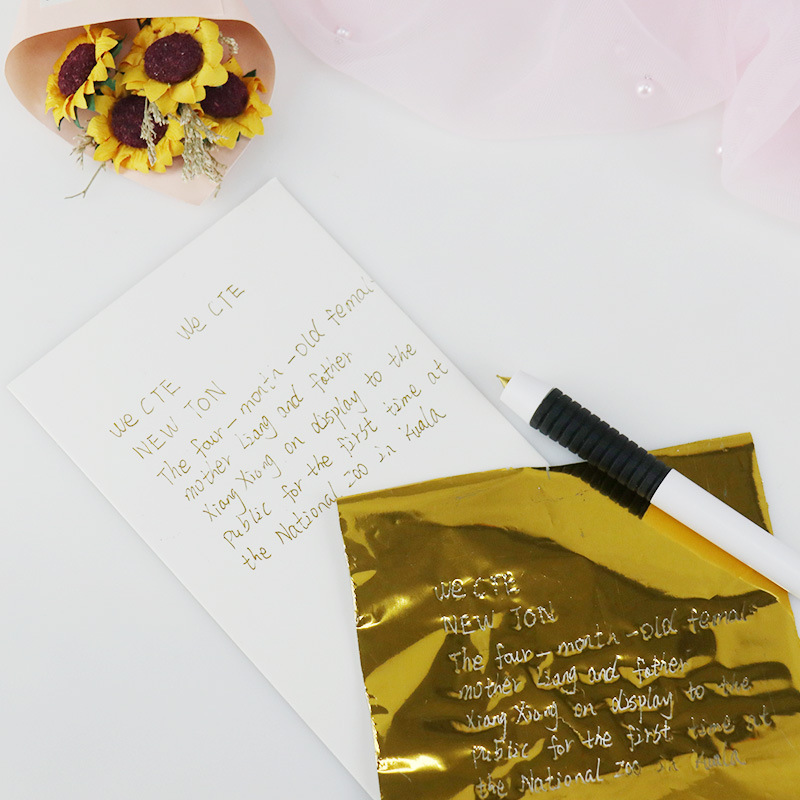 We CTE
We CTE
NEW TON
The four-month-old femal
mother Liang and father
Xiang Xiong on display to the
public for the first time at
the National Zoo in Kuala
We CTE
NEW TON
The four-month-old femal
mother Liang and father
Xiang Xiong on display to the
public for the first time at
the National Zoo in Kuala